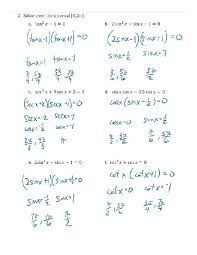 2. Solve over the interval [0,2π)
a. tan² x − 1 = 0
(tanx-1)(tanx+1)=0
tanx=1 tanx=-1
π/4, 5π/4 3π/4, 7π/4
b. 2 sin² x + sin x − 1 = 0
(2sinx-1)(sinx+1)=0
sinx=1/2 sinx=-1
π/6, 5π/6 3π/2
c. sec² x + 3 sec x + 2 = 0
(secx+2)(secx+1)=0
secx=-2 secx=-1
cosx=-1/2 cosx=-1
2π/3, 4π/3 π
d. sin x cos x − 0.5 cos x = 0
cosx(sinx-1/2)=0
cosx=0 sinx=1/2
π/2, 3π/2 π/6, 5π/6
e. 2 sin² x − sin x − 1 = 0
(2sinx+1)(sinx-1)=0
sinx=-1/2 sinx=1
7π/6, 11π/6 π/2
f. cot² x + cot x = 0
cotx(cotx+1)=0
cotx=0 cotx=-1
π/2, 3π/2 3π/4, 7π/4